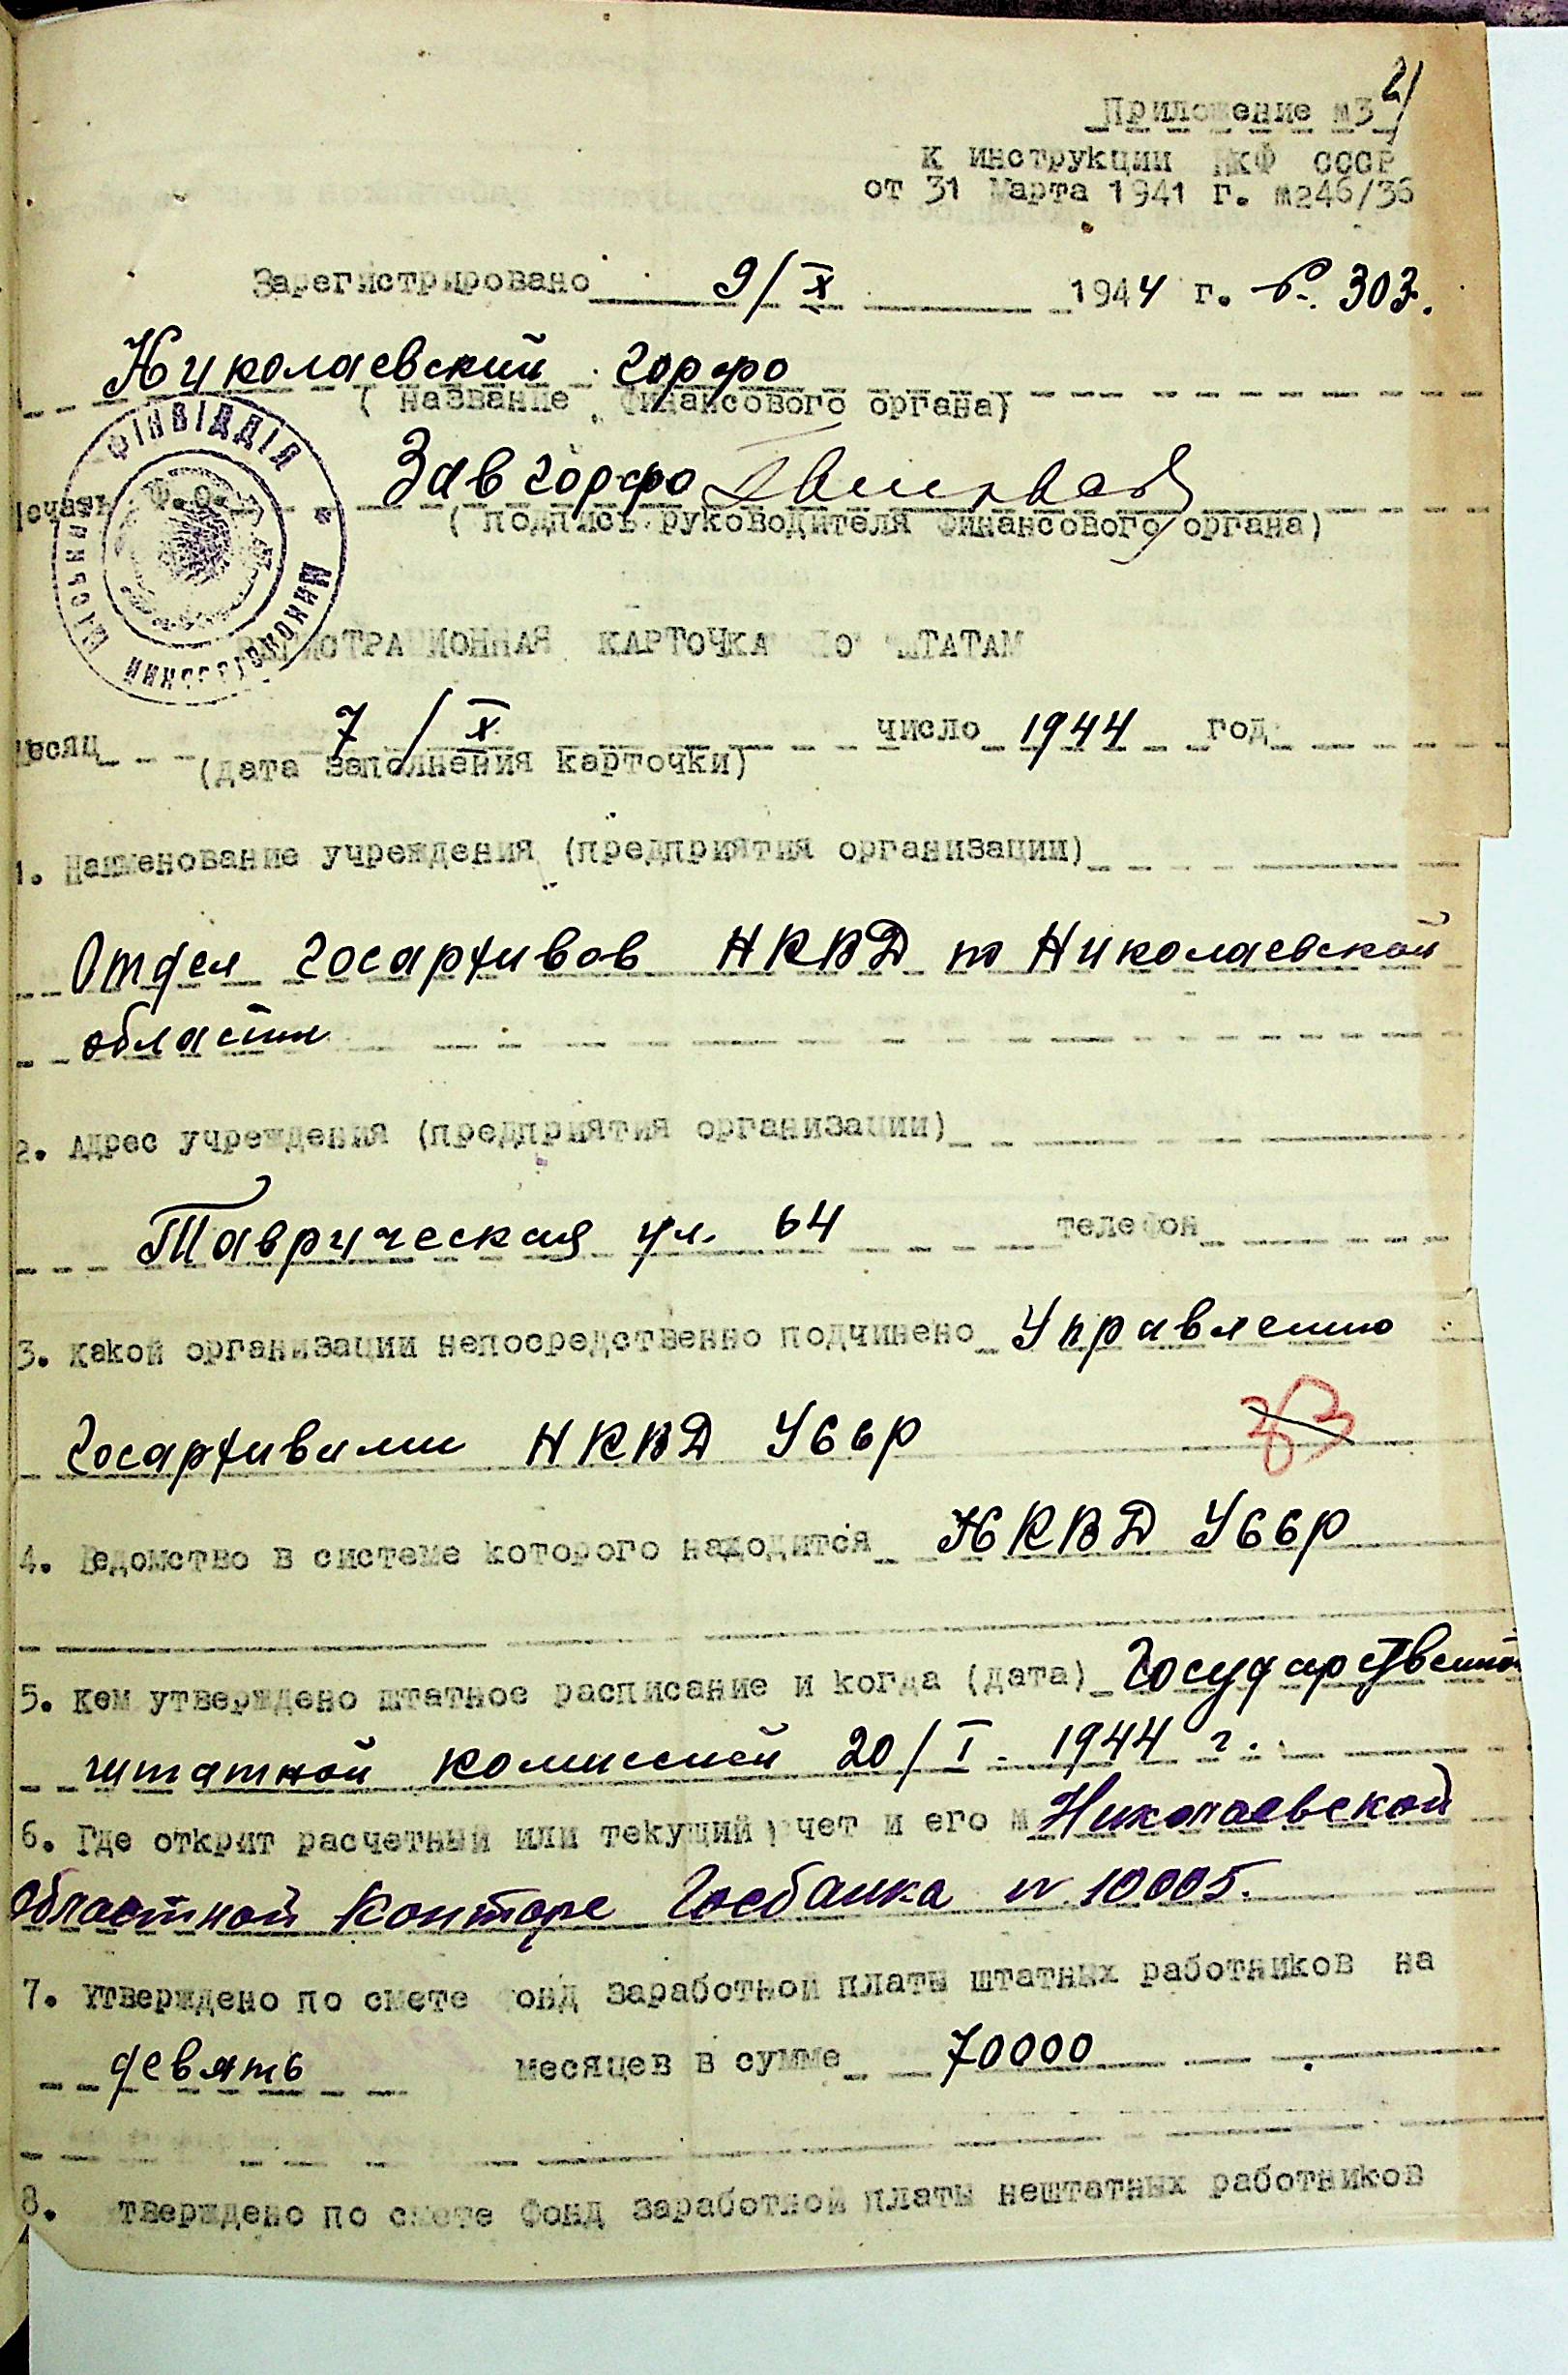 2/
Приложение №3
К инструкции НКФ СССР
от 31 Марта 1941 г. №246/36
Зарегистрировано 9/X 1944 г. 303.
Николаевский горфо
( название финансового органа)
ФІНВІДДІЛ * МИКОЛАЇВСЬКИЙ МІСЬКИЙ
Печать Ф.О. Зав горфо
( подпись руководителя финансового органа)
РЕГИСТРАЦИОННАЯ КАРТОЧКА ПО ШТАТАМ
месяц 7 / X число 1944 год
(дата заполнения карточки)
1. Наименование учреждения (предприятия организации)
Отдел Госархивов НКВД по Николаевской
области
2. Адрес учреждения (предприятия организации)
Таврическая ул. 64 телефон
3. Какой организации непосредственно подчинено Управлению
Госархивами НКВД УССР
4. Ведомство в системе которого находится НКВД УССР
5. Кем утверждено штатное расписание и когда (дата) Государственной
штатной комиссией 20/I. 1944 г.
6. Где открыт расчетный или текущий счет и его № Николаевской
областной конторе Госбанка № 10005.
7. Утверждено по смете фонд заработной платы штатных работников на
девять месяцев в сумме 70000
8. Утверждено по смете Фонд заработной платы нештатных работников